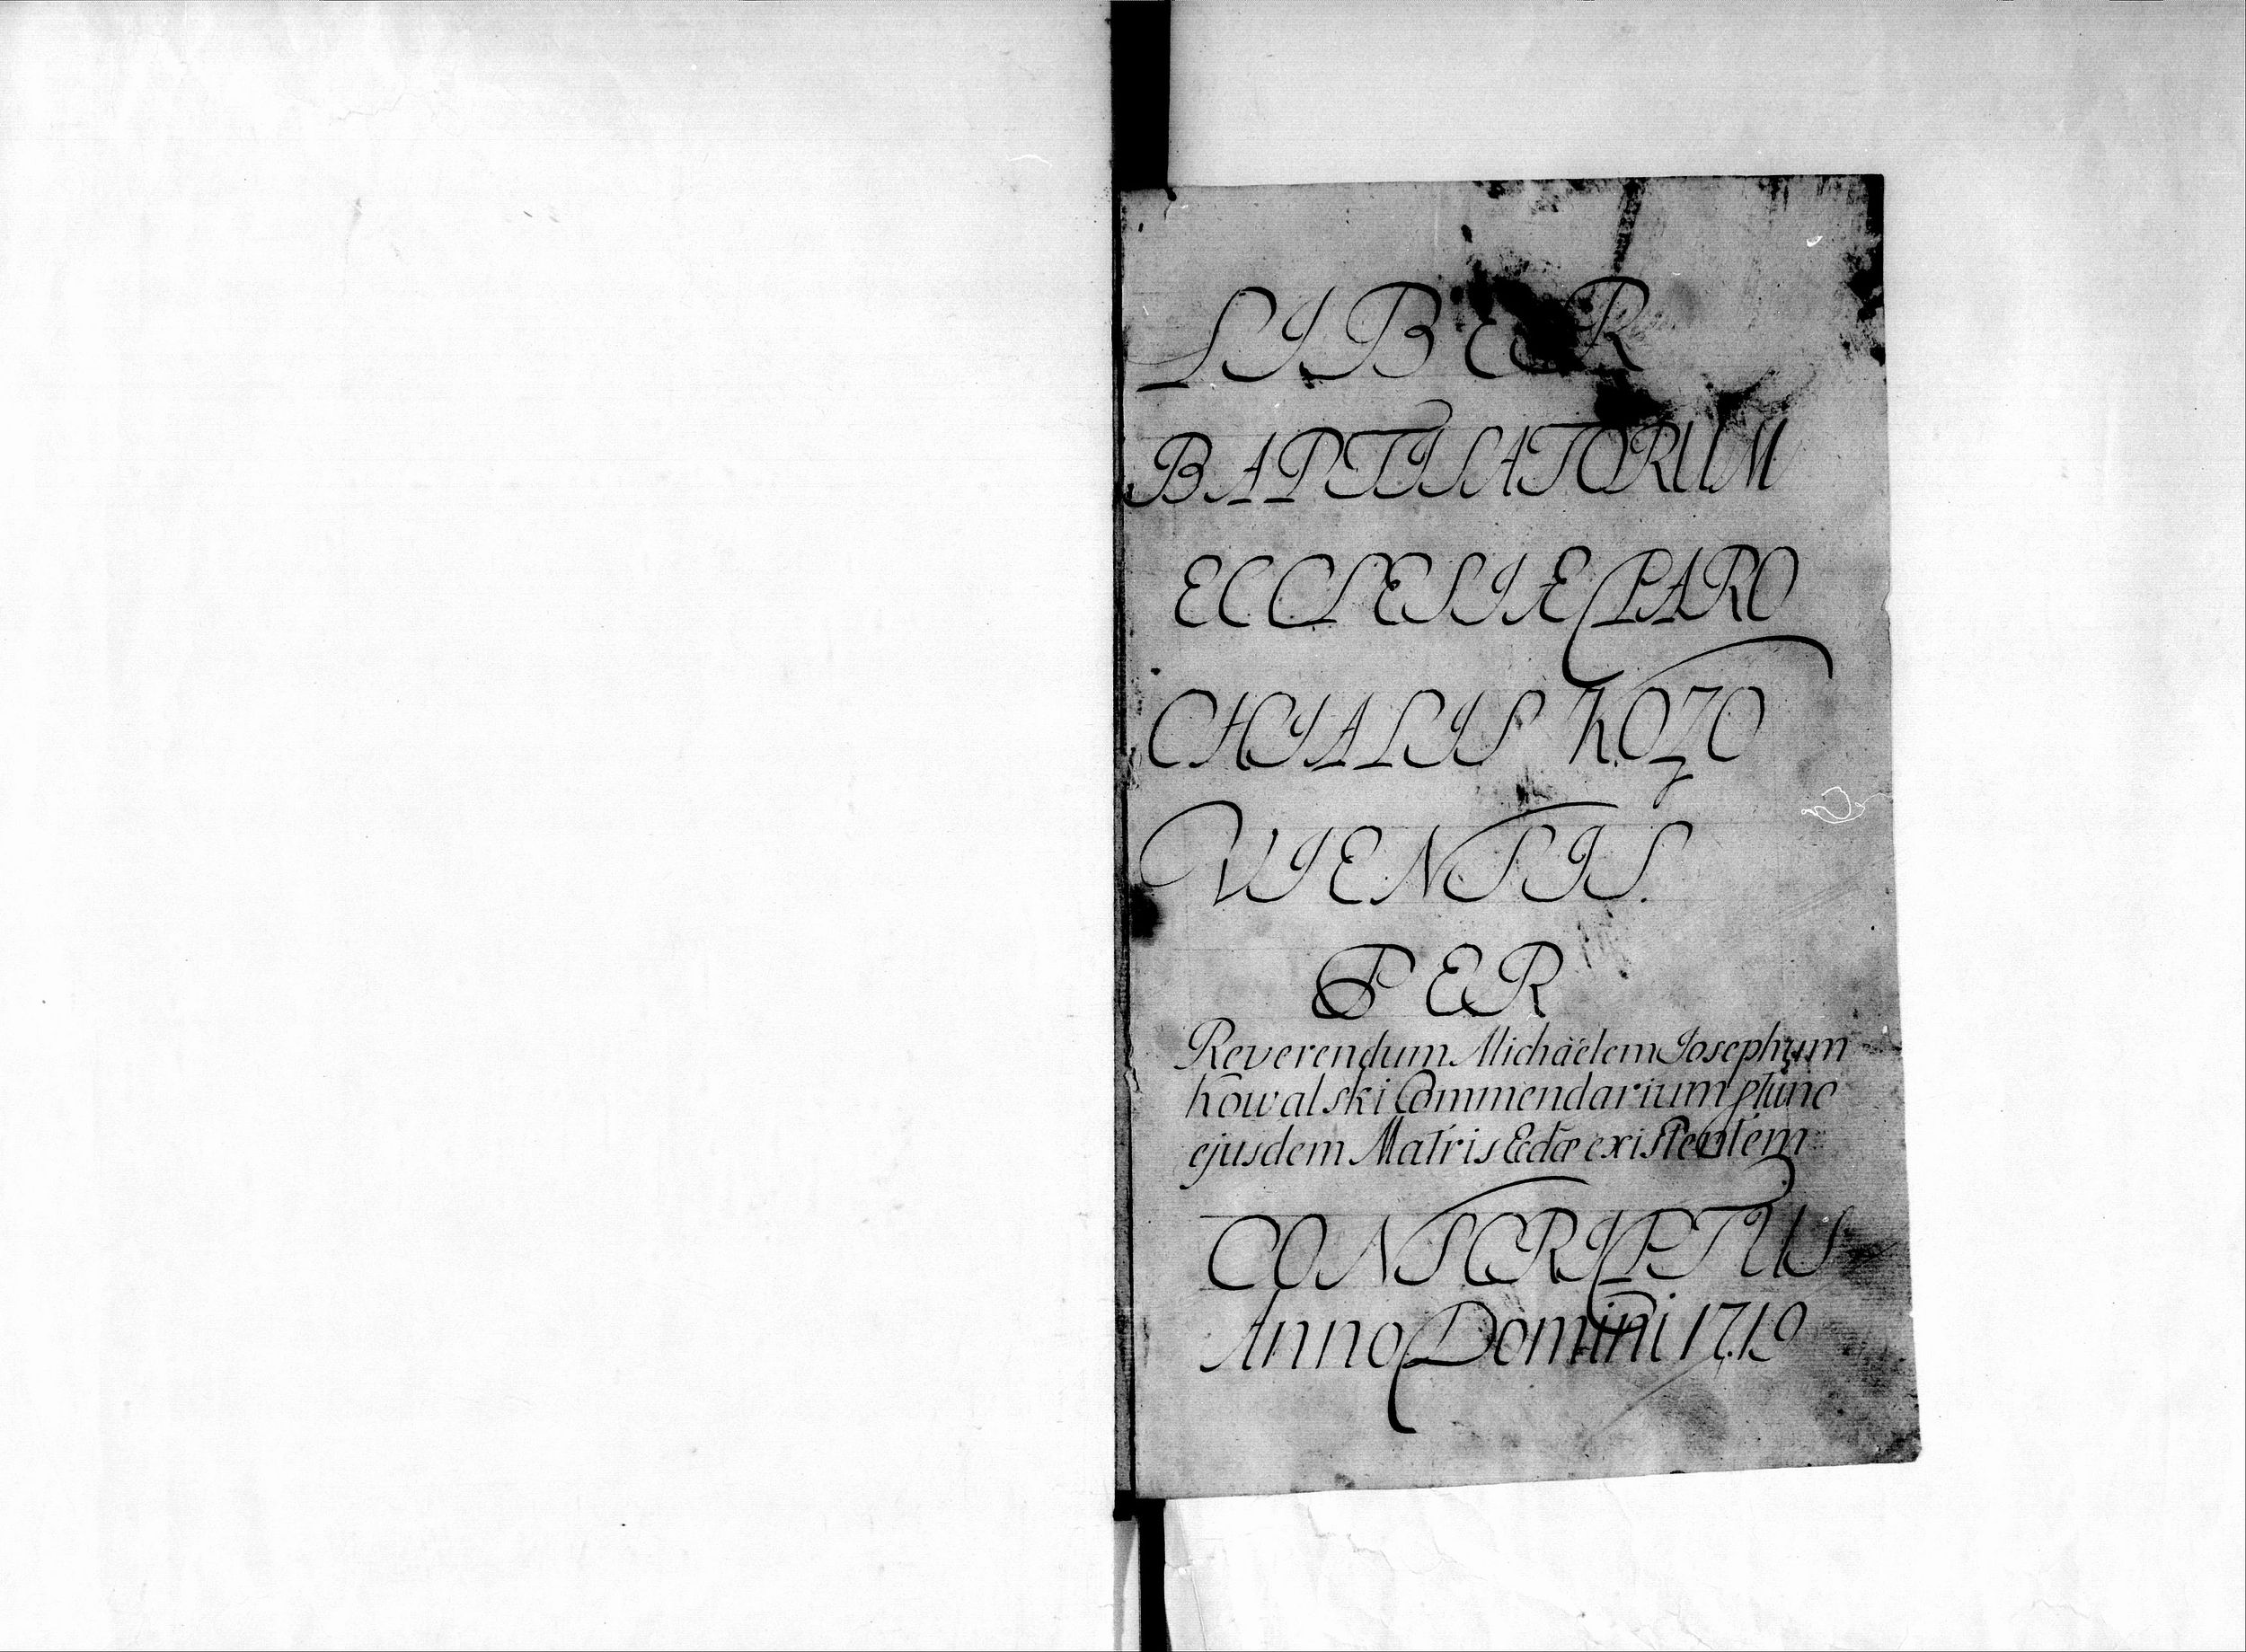 LIBER
BAPTISATORUM
ECCLESIÆ PARO
CHIALIS KOZO
VIENSIS.
PER
Reverendum Michaëlem Josephum
Kowalski Commendarium ptunc
ejusdem Matris Eclæ existentem
CONSCRIPTUS
Anno Domini 1719